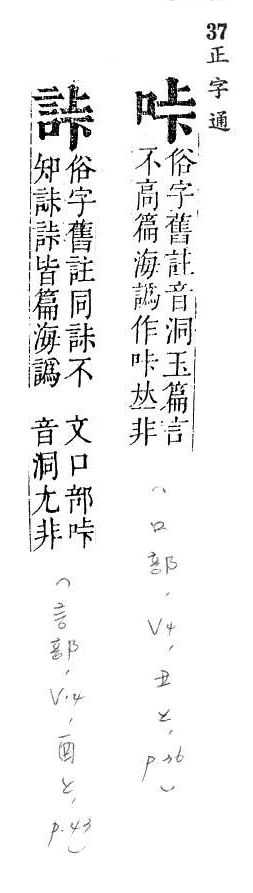 37 正字通
咔
俗字舊註音洞玉篇言
不高篇海譌作咔𠀤非
（口部，V4，丑上，p.36）
俗字舊註同 不
知 皆篇海譌
文口部咔
音洞尢非
（言部，V.4，酉上，p.43）